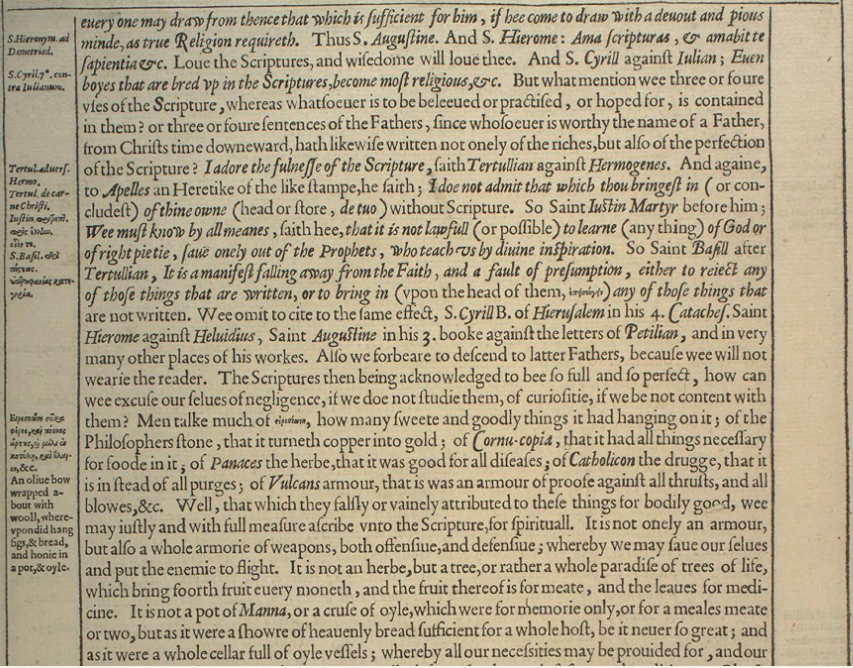 euery one may draw from thence that which is ſufficient for him, if hee come to draw with a deuout and pious
minde, as true Religion requireth. Thus S. Auguſtine. And S. Hierome: Ama ſcripturas, & amabit te
ſapientia &c. Loue the Scriptures, and wiſedome will loue thee. And S. Cyrill againſt Iulian; Euen
boyes that are bred vp in the Scriptures, become moſt religious, &c. But what mention wee three or foure
vſes of the Scripture, whereas whatſoeuer is to be beleeued or practiſed, or hoped for, is contained
in them? or three or foure ſentences of the Fathers, ſince whoſoeuer is worthy the name of a Father,
from Chriſts time downeward, hath likewiſe written not onely of the riches, but alſo of the perfection
of the Scripture? I adore the fulneſſe of the Scripture, ſaith Tertullian againſt Hermogenes. And againe,
to Apelles an Heretike of the like ſtampe, he ſaith; I doe not admit that which thou bringeſt in (or con-
cludeſt) of thine owne (head or ſtore, de tuo) without Scripture. So Saint Iuſtin Martyr before him;
Wee muſt know by all meanes, ſaith hee, that it is not lawfull (or poſſible) to learne (any thing) of God or
of right pietie, ſaue onely out of the Prophets, who teach vs by diuine inſpiration. So Saint Baſill after
Tertullian, It is a manifeſt falling away from the Faith, and a fault of preſumption, either to reiect any
of thoſe things that are written, or to bring in (vpon the head of them, ) any of thoſe things that
are not written. Wee omit to cite to the ſame effect, S. Cyrill B. of Hieruſalem in his 4. Catacheſ. Saint
Hierome againſt Heluidius, Saint Auguſtine in his 3. booke againſt the letters of Petilian, and in very
many other places of his workes. Alſo we forbeare to deſcend to latter Fathers, becauſe wee will not
wearie the reader. The Scriptures then being acknowledged to bee ſo full and ſo perfect, how can
wee excuſe our ſelues of negligence, if we doe not ſtudie them, of curioſitie, if we be not content with
them? Men talke much of , how many ſweete and goodly things it had hanging on it; of the
Philoſophers ſtone, that it turneth copper into gold; of Cornu-copia, that it had all things neceſſary
for foode in it; of Panaces the herbe, that it was good for all diſeaſes; of Catholicon the drugge, that it
is in ſtead of all purges; of Vulcans armour, that is was an armour of proofe againſt all thruſts, and all
blowes, &c. Well, that which they falſly or vainely attributed to theſe things for bodily good, wee
may iuſtly and with full meaſure aſcribe vnto the Scripture, for ſpirituall. It is not onely an armour,
but alſo a whole armorie of weapons, both offenſiue, and defenſiue; whereby we may ſaue our ſelues
and put the enemie to flight. It is not an herbe, but a tree, or rather a whole paradiſe of trees of life,
which bring foorth fruit euery moneth, and the fruit thereof is for meate, and the leaues for medi-
cine. It is not a pot of Manna, or a cruſe of oyle, which were for memorie only, or for a meales meate
or two, but as it were a ſhowre of heauenly bread ſufficient for a whole hoſt, be it neuer ſo great; and
as it were a whole cellar full of oyle veſſels; whereby all our neceſſities may be prouided for, and our
S. Hieronym. ad
Demetriad.
S. Cyril. 7°. con-
tra Iulianum.
Tertul. aduerſ.
Hermo.
Tertul. de car-
ne Chriſti.
Iuſtin
S. Baſil.
An oliue bow
wrapped a-
bout with
wooll, where-
vpon did hang
figs, & bread,
and honie in
a pot, & oyle.